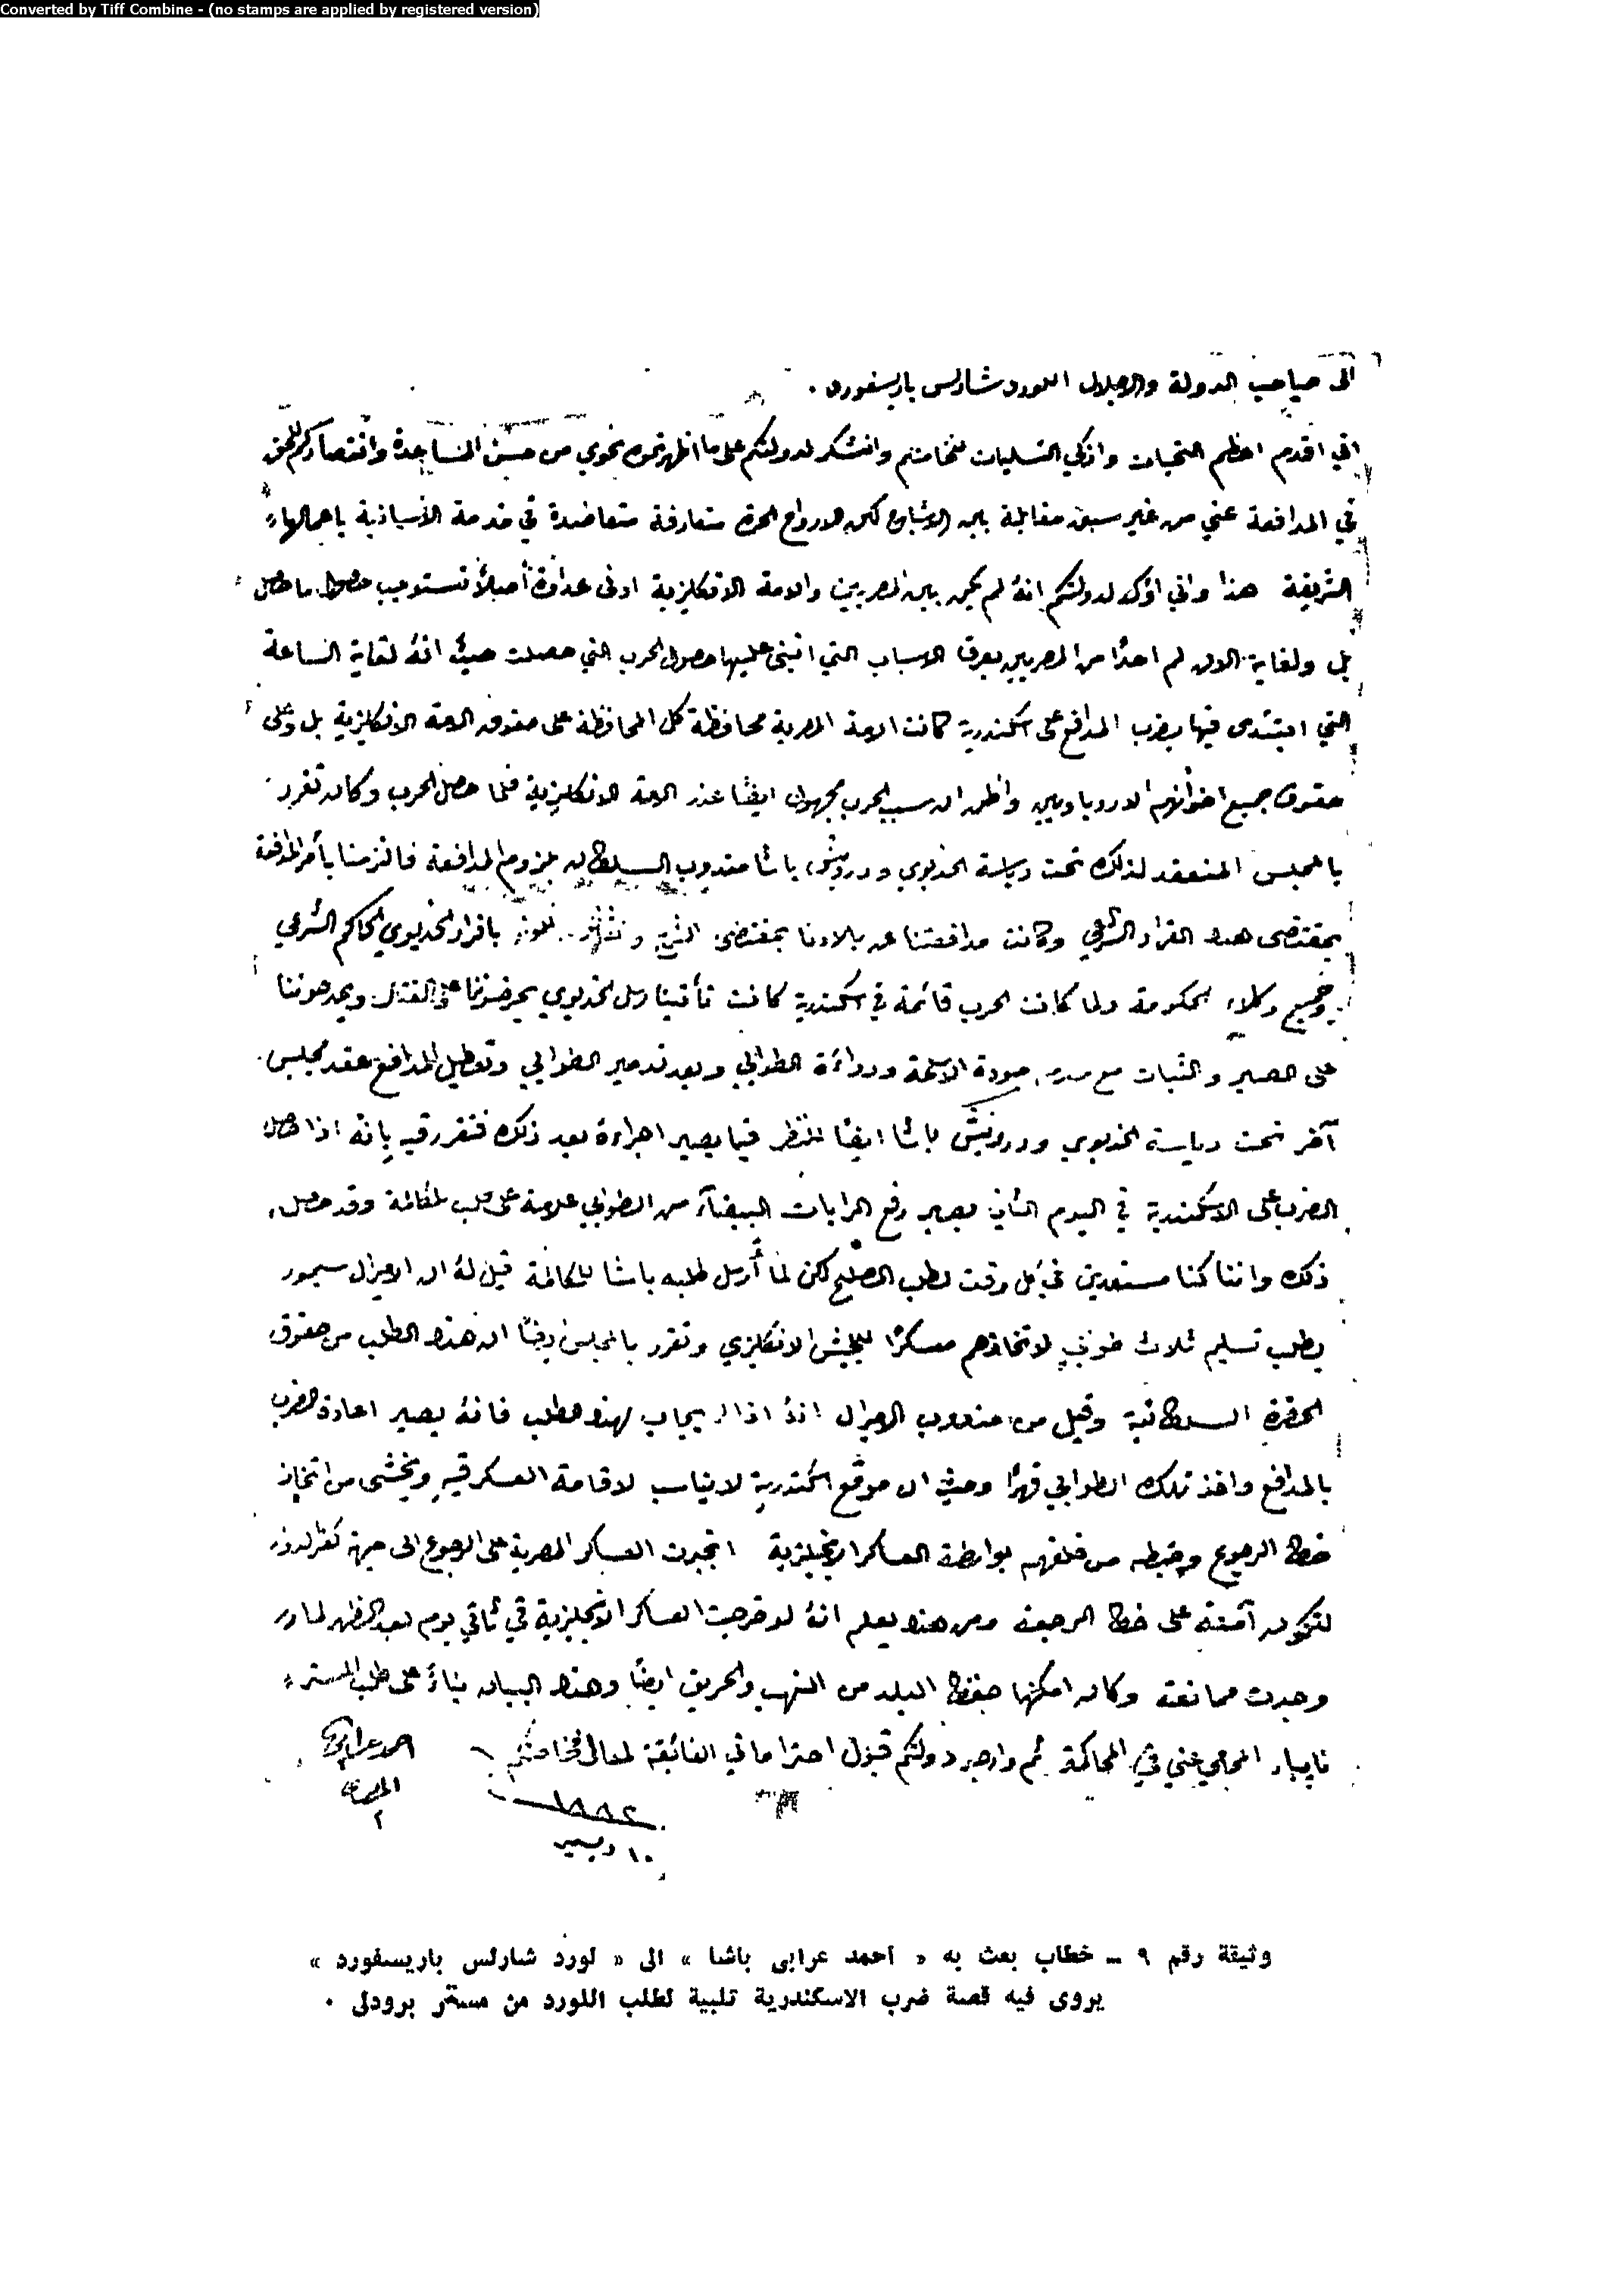 Converted by Tiff Combine - (no stamps are applied by registered version)
الى صاحب الدولة والاجلال اللورد شارلس باريسفورد .
اني اقدم اعظم التحيات وازكي التسليمات لفخامتكم واتشكر لدولتكم على ما اظهرتموه نحوي من حسن المساعدة وانتصاركم للحق
في المدافعة عني من غير سبق مقابلة بين الاشباح لكن الارواح الحرة متعارفة متعاضدة في خدمة الانسانية باعمالها
الشريفة هذا واني اؤكد لدولتكم انهُ لم يكن بين المصريين والامة الانكليزية ادنى عداوة اصلاً تستوجب حصول ما حصل
بل ولغاية الان لم احدًا من المصريين يعرف الاسباب التي انبنى عليها حصول الحرب التي حصلت حيث انهُ لغاية الساعة
التي ابتدى فيها بضرب المدافع على اسكندرية كانت الامة المصرية محافظة كل المحافظة على حقوق الامة الانكليزية بل وعلى
حقوق جميع اخوانهم الاوروباويين واظن ان سبب الحرب مجهول ايضًا عند الامة الانكليزية فلما حصل الحرب وكان تقرر
بالمجلس المنعقد لذلك تحت رياسة الخديوي ودرويش باشا مندوب السلطان بلزوم المدافعة فالتزمنا بأمر المدافعة
بمقتضى هذا القرار الشرعي وكانت مدافعتنا عن بلادنا بمقتضى الشرع و باقرار الخديوي الحاكم الشرعي
وجميع وكلاء الحكومة ولما كانت الحرب قائمة في اسكندرية كانت تأتينا رسل الخديوي يحرضوننا على القتال ويمدحوننا
على الصبر والثبات مع جودة الاسلحة ورداءة الطوابي وبعد تدمير الطوابي وتعطيل المدافع عقد مجلس
آخر تحت رياسة الخديوي ودرويش باشا ايضًا للنظر فيما يصير اجراءه بعد ذلك فتقرر فيه بانه اذا حصل
الضرب على الاسكندرية في اليوم الثاني يصير رفع الرايات البيضاء من الطوابي علامة على طلب المكالمة وقد حصل
ذلك واننا كنا مستعدين في كل وقت لطلب الصلح لكن لما أُرسل طلبه باشا للمكالمة قيل لهُ ان الاميرال سيمور
يطلب تسليم ثلاث طوابي لاتخاذهم معسكرًا للجيش الانكليزي وتقرر بالمجلس ايضًا ان هذا الطلب من حقوق
الحضرة السلطانية وقيل من مندوب الاميرال انهُ اذا لم يجاب لهذا الطلب فانهُ يصير اعادة الضرب
بالمدافع واخذ تلك الطوابي قهرًا وحيث ان موقع اسكندرية لا يناسب لاقامة العسكر فيهِ ويخشى من اتخاذ
خط الرجوع وضبطه من خلفهم بواسطة العساكر الانجليزية انجبرت العساكر المصرية على الرجوع الى جهة كفر الدوار
لتكون آمنة على خط الرجعة ومن هذا يعلم انهُ لو خرجت العساكر الانجليزية في ثاني يوم بعد الظهر لما
وجدت ممانعة وكان امكنها حفظ البلد من النهب والحريق ايضًا وهذا البيان بناءً على طلب المستر
ناپيار المحامي عني في المحاكمة ثم وارجو دولتكم قبول احتراماتي الفائقة لمعالي فخامتكم
احمد عرابي
المصري
١٨٨٢
١٠ ديسمبر
وثيقة رقم ٩ ــ خطاب بعث به « أحمد عرابى باشا » الى « لورد شارلس باريسفورد »
يروى فيه قصة ضرب الاسكندرية تلبية لطلب اللورد من مستر برودلى .